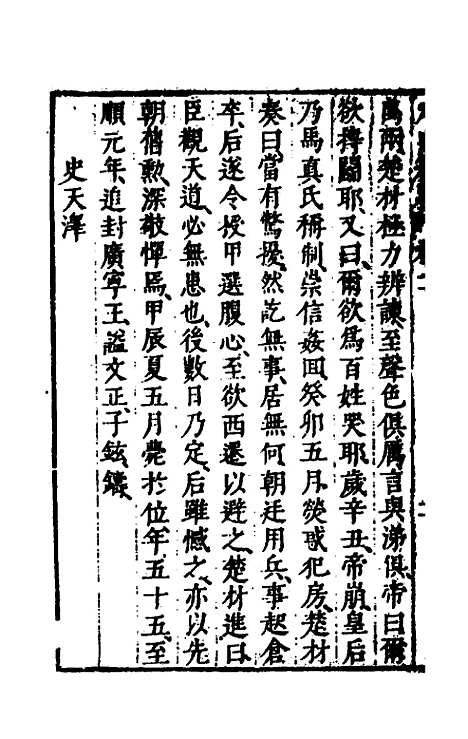 萬兩楚材極力辨諫至聲色俱厲言與涕俱帝曰爾
欲搏鬭耶又曰爾欲爲百姓哭耶歲辛丑帝崩皇后
乃馬真氏稱制崇信姦回癸卯五月熒惑犯房楚材
奏曰當有驚擾然訖無事居無何朝廷用兵事起倉
卒后遂令授甲選腹心至欲西遷以避之楚材進曰
臣觀天道必無患也後數日乃定后雖憾之亦以先
朝舊勲深敬憚焉甲辰夏五月薨於位年五十五至
順元年追封廣寧王謚文正子鉉鑄
史天澤